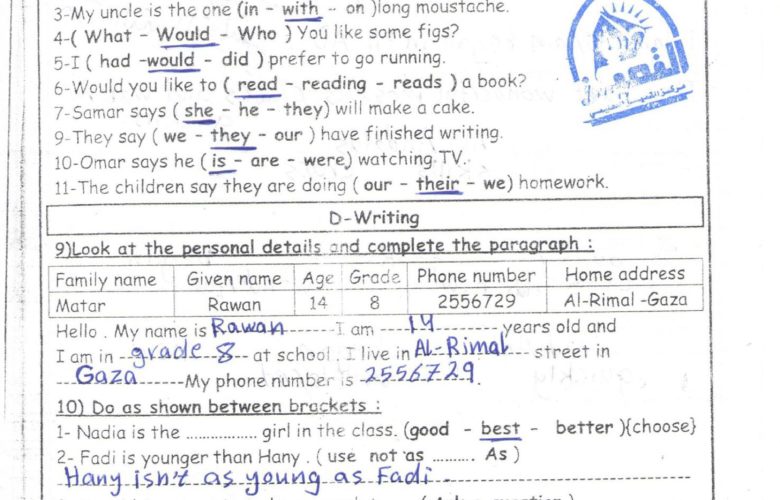 3-My uncle is the one (in - with - on )long moustache.
4-( What - Would - Who ) You like some figs?
5-I ( had -would - did ) prefer to go running.
6-Would you like to ( read - reading - reads ) a book?
7-Samar says ( she - he - they) will make a cake.
9-They say ( we - they - our ) have finished writing.
10-Omar says he ( is - are - were) watching TV.
11-The children say they are doing ( our - their - we) homework.
D-Writing
9)Look at the personal details and complete the paragraph :
Family name Given name Age Grade Phone number Home address
Matar Rawan 14 8 2556729 Al-Rimal -Gaza
Hello . My name is Rawan -------I am ----14----------years old and
I am in --grade 8-- at school . I live in Al-Rimal--- street in
----Gaza-------My phone number is -2556729.
10) Do as shown between brackets :
1- Nadia is the .................. girl in the class. (good - best - better ){choose}
2- Fadi is younger than Hany . ( use not as .......... As )
Hany isn't as young as Fadi.